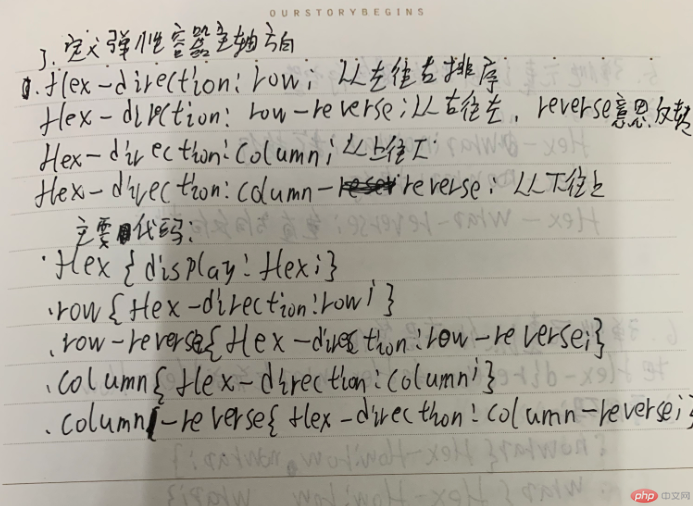 OURSTORYBEGINS
3. 定义弹性容器主轴方向
1. flex-direction: row; 从左往右排序
flex-direction: row-reverse; 从右往左, reverse意思反转
flex-direction: column; 从上往下
flex-direction: column-reverse: 从下往上
主要代码:
.flex {display: flex;}
.row{flex-direction:row;}
.row-reverse{flex-direction:row-reverse;}
.column{flex-direction:column;}
.column-reverse{flex-direction:column-reverse;}
php 中文网